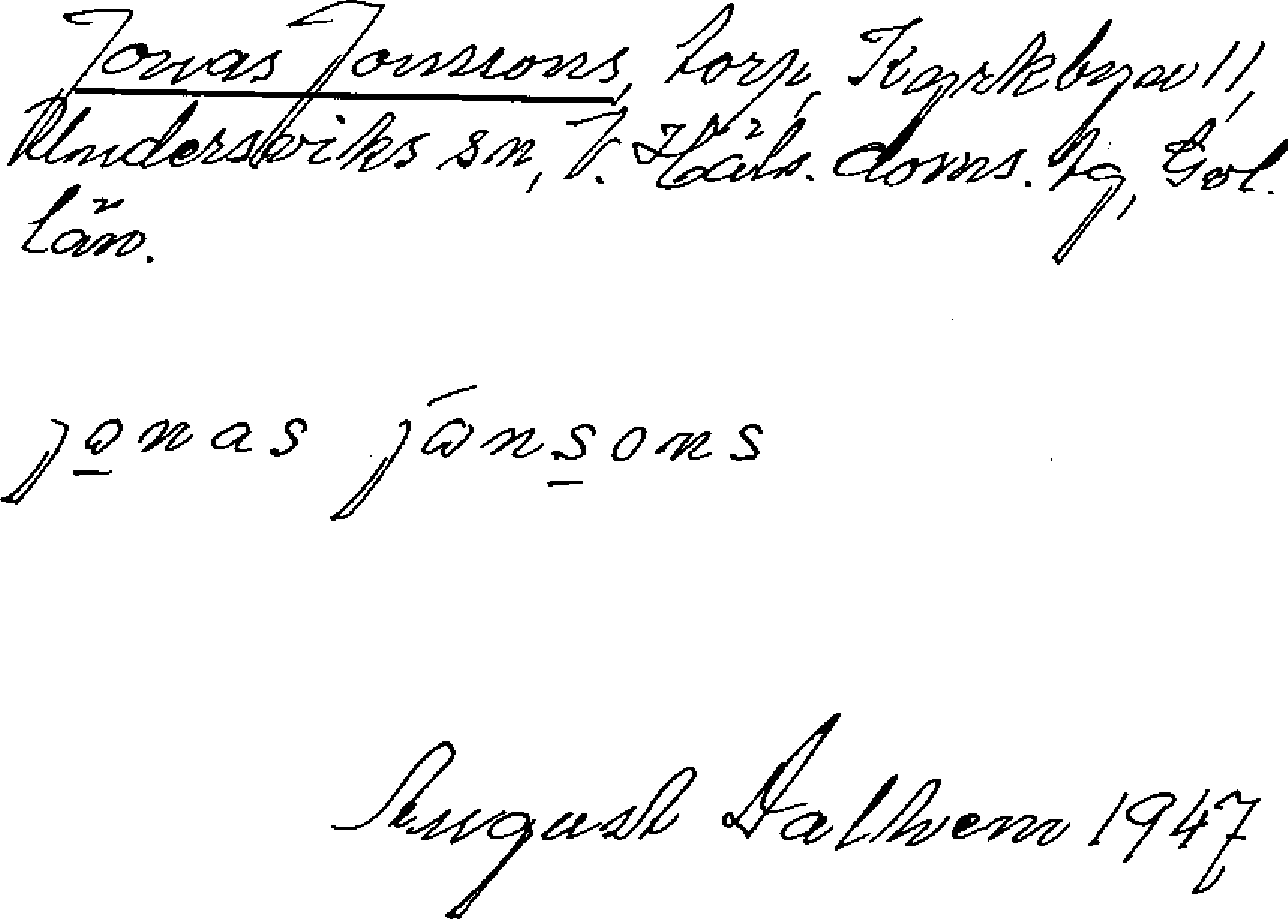 Jonas Jonssons, torp, Kyrkbyn 11,
Undersviks sn, V. Häls. doms. tg, Gvl.
län.
jonas jōnsons
August Dalhem 1947